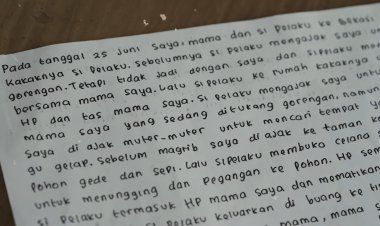 Pada tanggal 25 juni saya, mama dan si pelaku ke Bekasi
kakaknya si pelaku. Sebelumnya si pelaku mengajak saya
gorengan. Tetapi tidak jadi dengan saya dan si pelaku
bersama mama saya. Lalu si pelaku ke rumah kakaknya
HP dan tas mama saya. Si pelaku mengajak saya untuk
mama saya yang sedang ditukang gorengan, namun
Saya di ajak muter-muter untuk mencari tempat
gu gelap. Sebelum magrib saya di ajak ke taman
pohon gede dan sepi. Lalu si pelaku membuka celana
untuk menungging dan pegangan ke pohon. HP
si pelaku termasuk HP mama saya dan mematikan
Pelaku keluarkan di buang ke
mama, mama